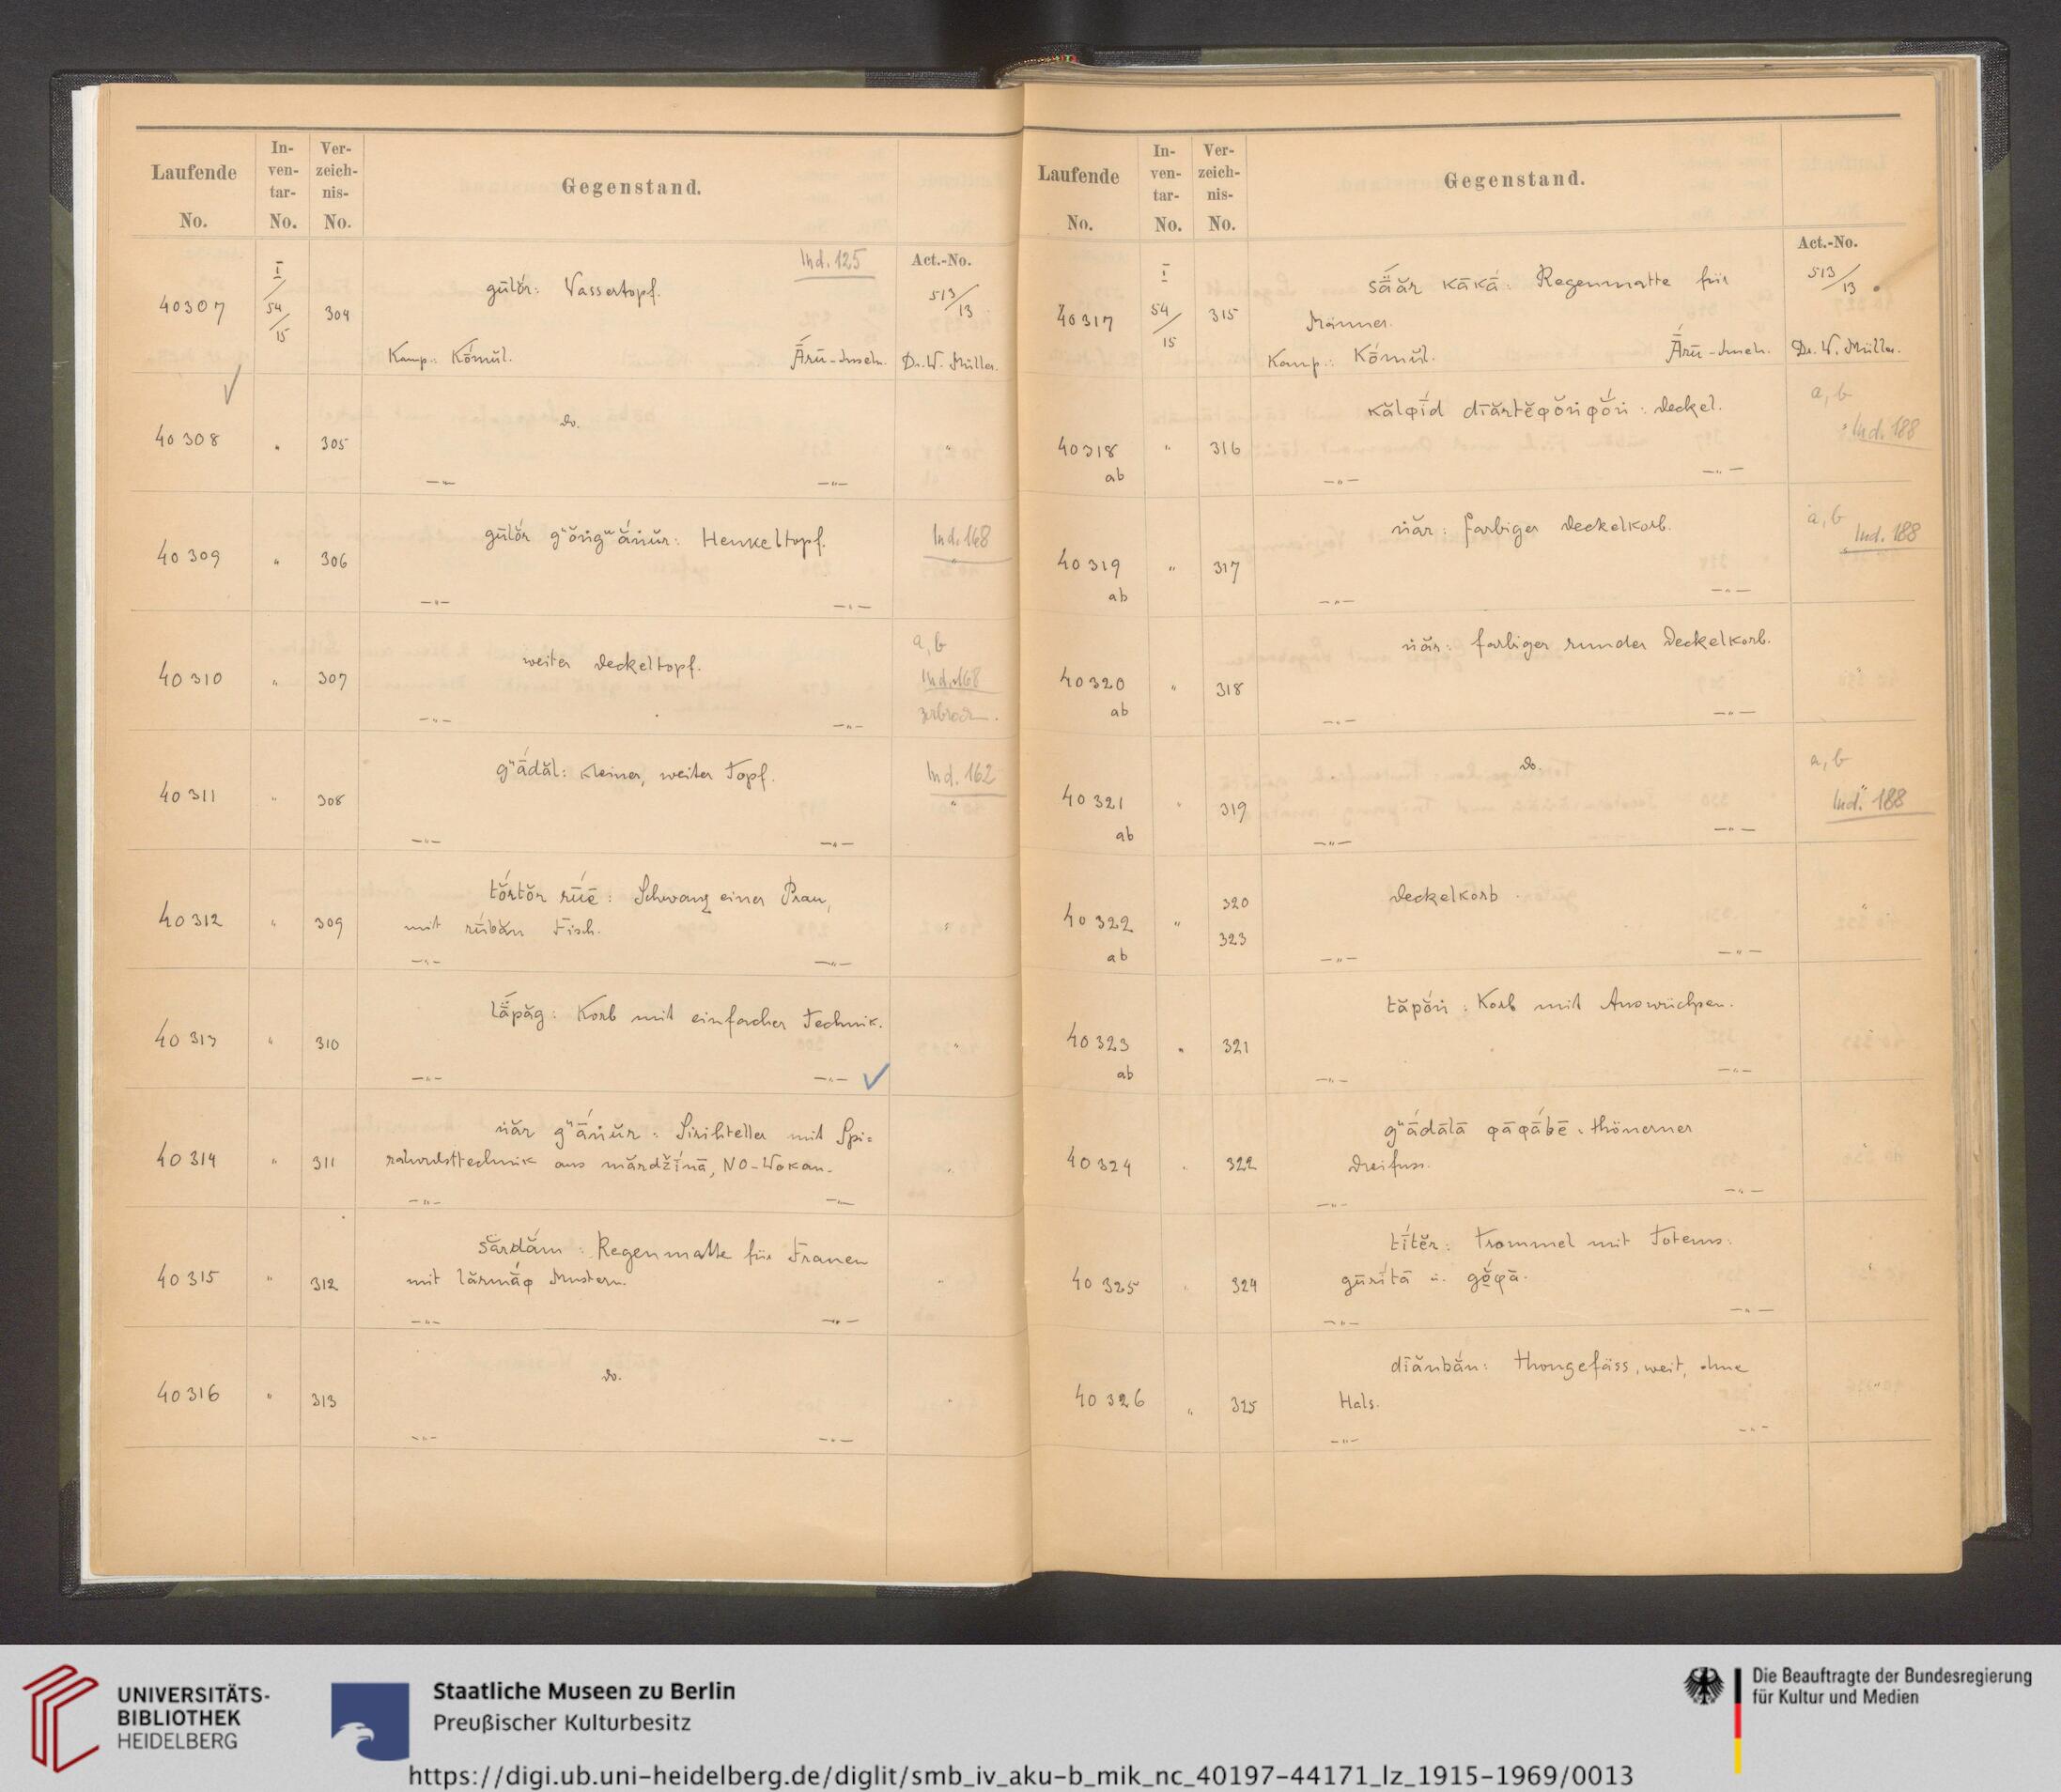 Laufende No. In-ven-tar- No. Ver-zeich-nis- No. Gegenstand.
Ind. 125 Act.-No.
40307 I/54/15 304 gūlŏ́r: Wassertopf. 513/13
Kamp.: Kṓmŭl. Ā́rū-Inseln. Dr. W. Müller.
40308 " 305 do. "
—"— —"—
40309 " 306 gūlŏ́r gᵘŏṅgᵘā́ṅŭr: Henkeltopf. Ind. 168
"
—"— —"—
40310 " 307 weiter Deckeltopf. a, b
Ind. 168
zerbroch.
—"— —"—
40311 " 308 gᵘā́dăl: kleiner, weiter Topf. Ind. 162
"
—"— —"—
40312 " 309 tŏ́rtŏr rū́ē: Schwanz einer Prau,
mit Fisch. "
—"— —"—
40313 " 310 lā̈́păg: Korb mit einfacher Technik. "
—"— —"— ✓
40314 " 311 ṅăr gᵘā́ṅŭr: Sirihteller mit Spi=
ralwulsttechnik aus mărdžī́nā, NO-Wokan. "
—"— —"—
40315 " 312 sărdắm: Regenmatte für Frauen
mit lărmā́φ Mustern. "
—"— —"—
40316 " 313 do. "
—"— —"—
Laufende No. In-ven-tar- No. Ver-zeich-nis- No. Gegenstand.
Act.-No.
40317 I/54/15 315 sā̈́ăr kākā́: Regenmatte für 513/13
Männer.
Kamp.: Kṓmŭl. Ā́rū-Inseln. Dr. W. Müller.
40318 " 316 kălφī́d dīărtĕφŏṅφŏ́ṅ: Deckel. a, b
ab " Ind. 188
—"— —"—
40319 " 317 ṅăr: farbiger Deckelkorb. a, b
Ind. 188
ab —"— —"—
40320 " 318 ṅăr: farbiger runder Deckelkorb. "
ab —"— —"—
40321 " 319 do. a, b
" Ind. 188
ab —"— —"—
40322 " 320 Deckelkorb. "
323
ab —"— —"—
40323 " 321 tăpŏ́ṅ: Korb mit Auswüchsen. "
ab —"— —"—
40324 " 322 gᵘā́dālā φāφā́bē: thönerner "
Dreifuss.
—"— —"—
40325 " 324 tī́tĕr: Trommel mit Totems: "
gūrī́tā u. gŏ́φā.
—"— —"—
40326 " 325 dīănbắn: Thongefäss, weit, ohne "
Hals.
—"— —"—
UNIVERSITÄTS-
BIBLIOTHEK
HEIDELBERG
Staatliche Museen zu Berlin
Preußischer Kulturbesitz
Die Beauftragte der Bundesregierung
für Kultur und Medien
https://digi.ub.uni-heidelberg.de/diglit/smb_iv_aku-b_mik_nc_40197-44171_lz_1915-1969/0013